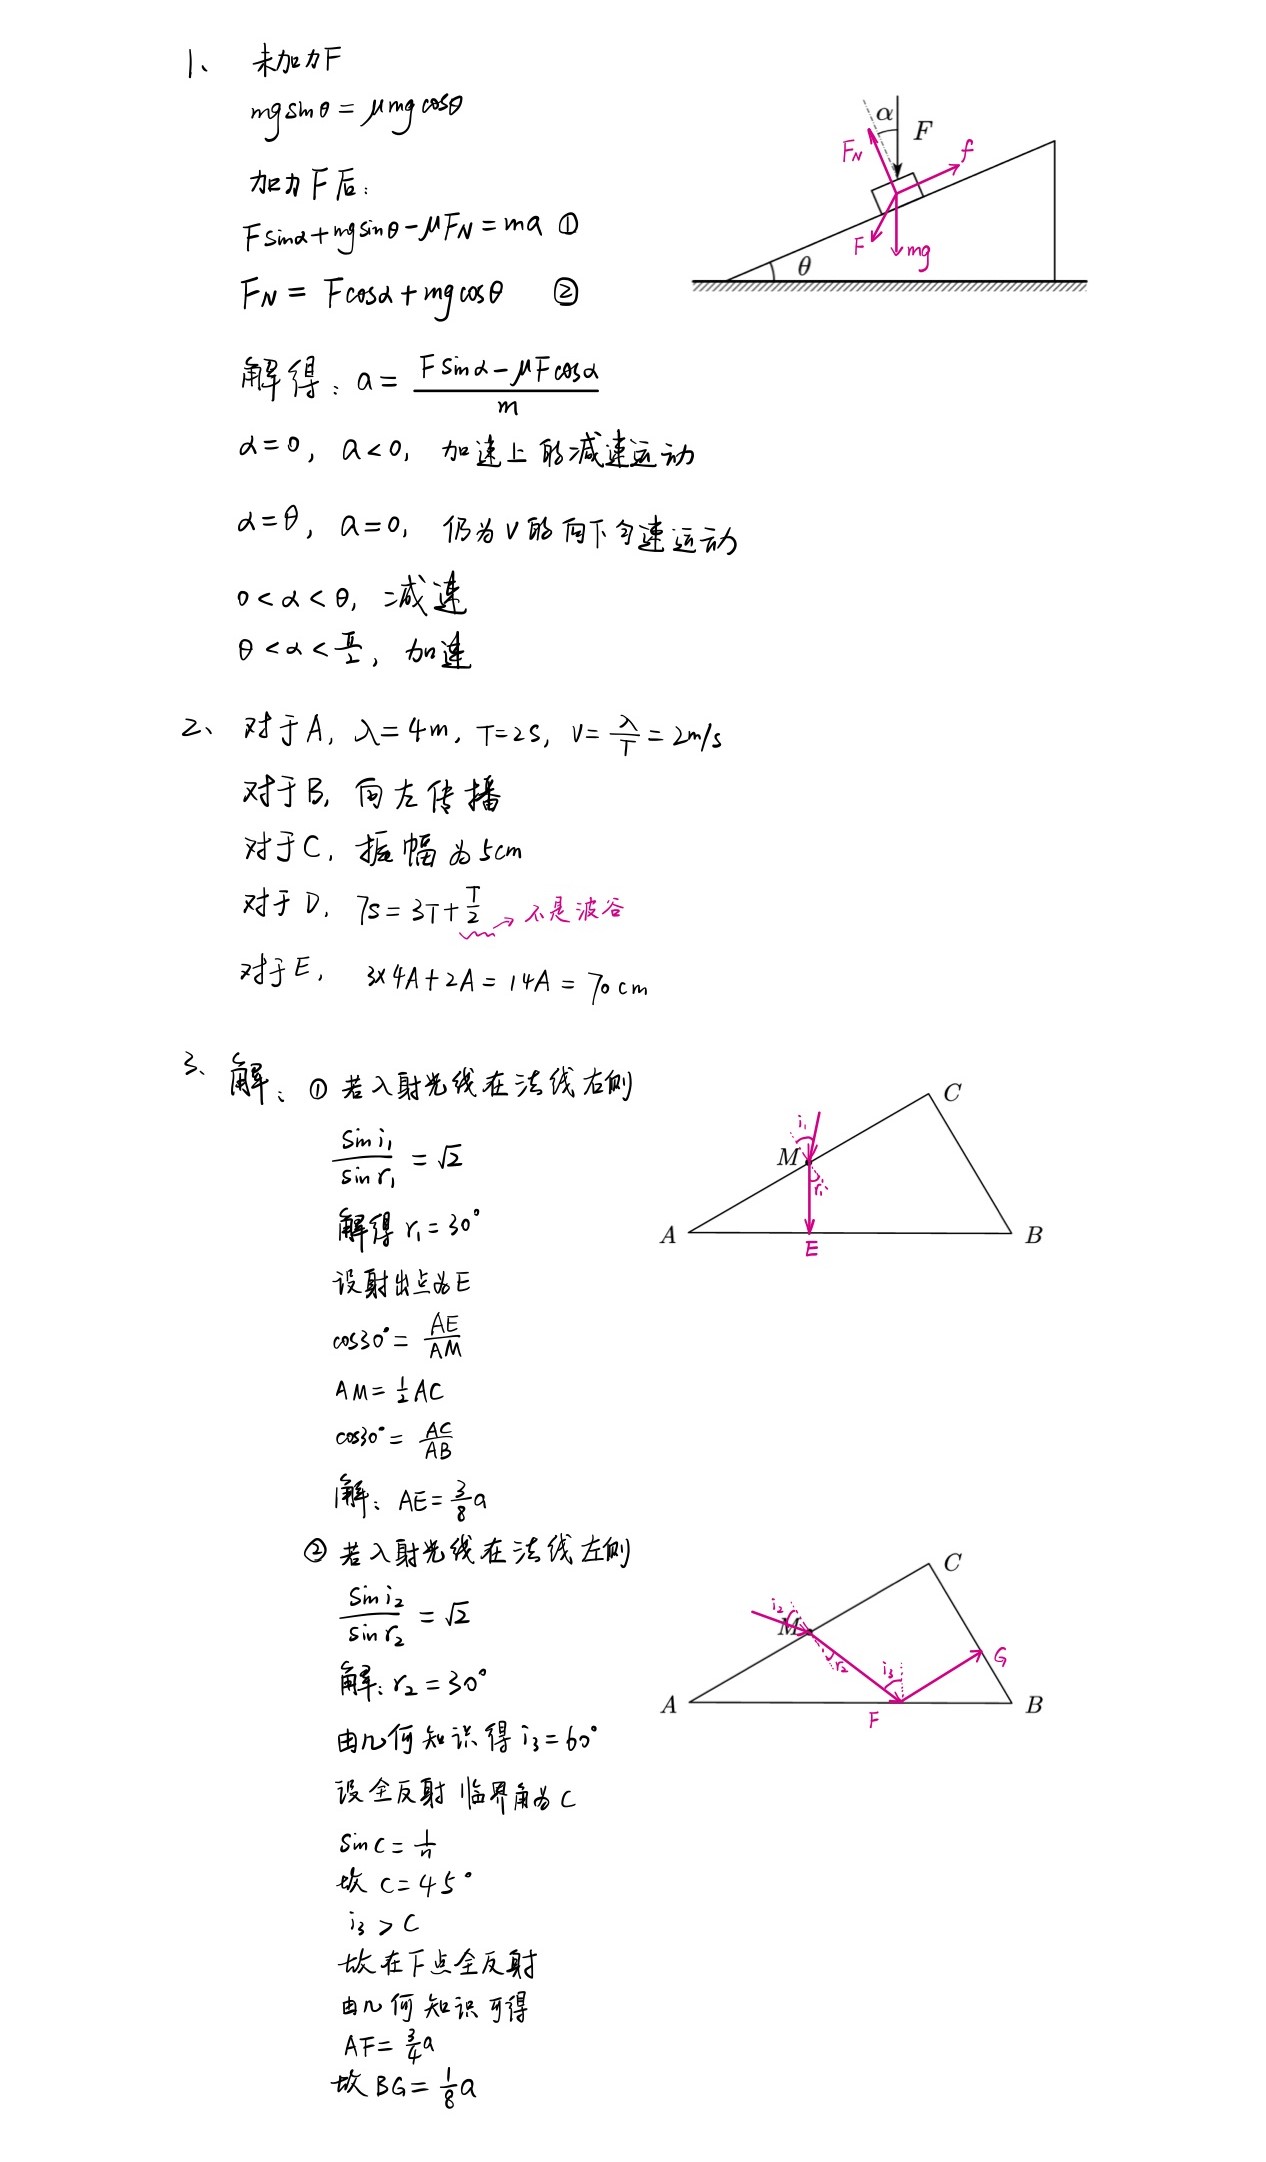 1、 未加力F
mgsinθ = μmgcosθ
加力F后:
Fsinα+mgsinθ-μFN=ma ①
FN = Fcosα+mgcosθ ②
解得: a = (Fsinα-μFcosα)/m
α=0, a<0, 加速上的减速运动
α=θ, a=0, 仍为v的向下匀速运动
0<α<θ, 减速
θ<α<π/2, 加速
α
F
FN
f
F
mg
θ
2、 对于A, λ=4m, T=2s, v=λ/T=2m/s
对于B, 向左传播
对于C, 振幅为5cm
对于D, 7s=3T+T/2 → 不是波谷
对于E, 3×4A+2A=14A=70cm
3、 解: ① 若入射光线在法线右侧
sini₁/sinr₁ = √2
解得 r₁=30°
设射出点为E
cos30°= AE/AM
AM=1/2AC
cos30°= AC/AB
解: AE=3/8a
C
i₁
M
r₁
A
E
B
② 若入射光线在法线左侧
sini₂/sinr₂ = √2
解: r₂=30°
由几何知识得i₃=60°
设全反射临界角为C
sinC=1/n
故 C=45°
i₃>C
故在F点全反射
由几何知识可得
AF=3/4a
故BG=1/8a
C
i₂
M
r₂
i₃
G
A
F
B